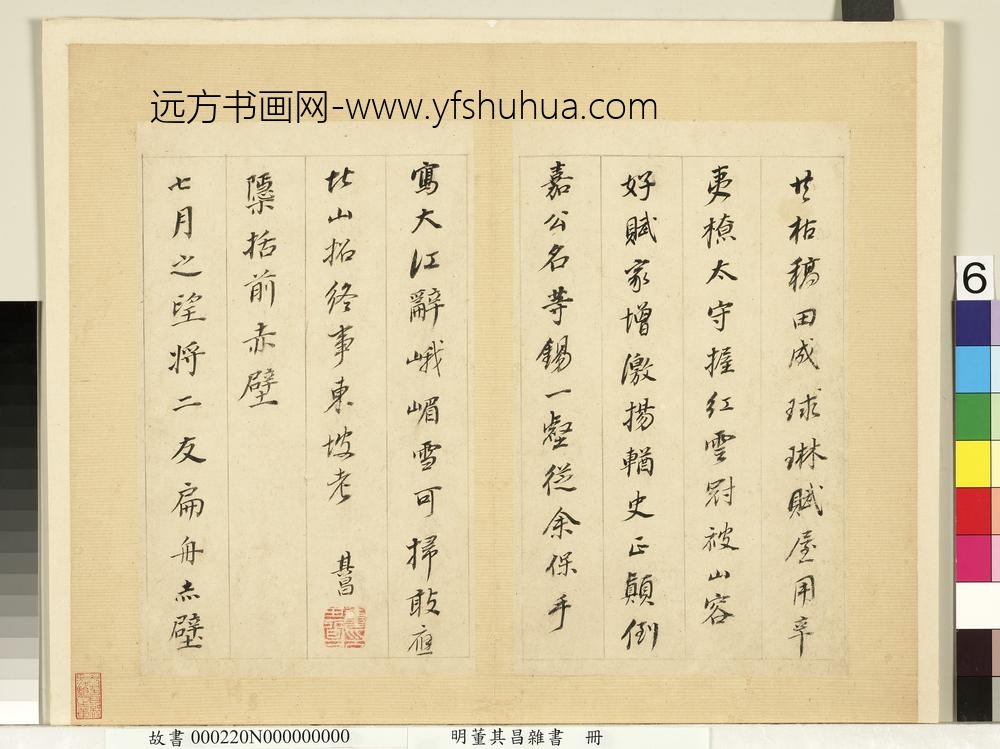 远方书画网-www.yfshuhua.com
枯稿田成球琳賦用卒
太守握紅雲被山容
好賦家增激揚輶史正顛倒
嘉公名等錫一壑從余保
寫大江辭峨嵋雪可掃敢應
北山招終事東坡老
其昌
檃括前赤壁
七月之望将二友扁舟赤壁
6
故書 000220N000000000
明董其昌雜書 冊